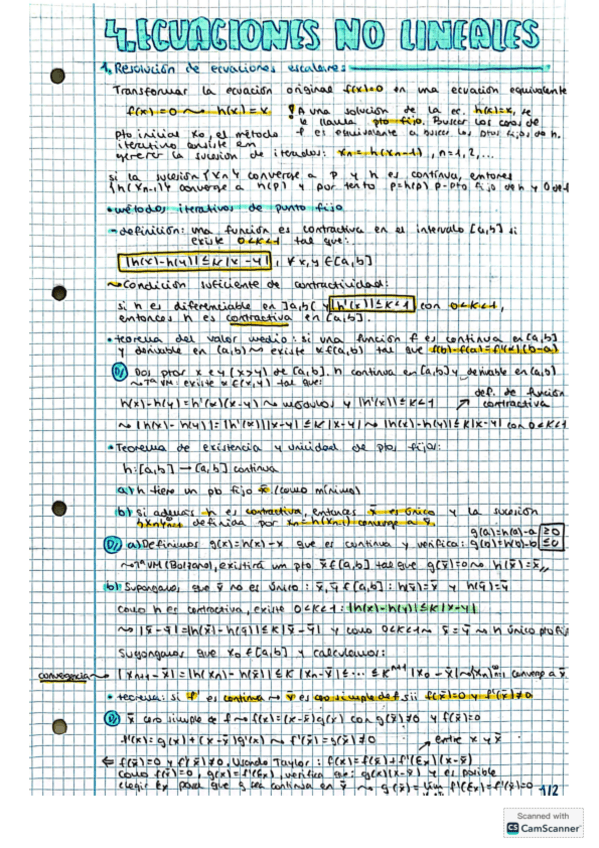 4. ECUACIONES NO LINEALES
1. Resolución de ecuaciones escalares
Transformar la ecuación original f(x)=0 en una ecuación equivalente
f(x)=0 ⇝ h(x)=x. ! A una solución de la ec. h(x)=x, se
le llama pto fijo. Buscar los ceros de
Pto inicial x₀, el método f es equivalente a buscar los ptos fijos de h.
iterativo consiste en
generar la sucesión de iterados: xₙ=h(xₙ₋₁), n=1,2,...
si la sucesión {xₙ} converge a p y h es continua, entonces
{h(xₙ₋₁)} converge a h(p) y por tanto p=h(p) p-pto fijo de h y 0 de f
• métodos iterativos de punto fijo
- definición: una función es contractiva en el intervalo [a,b] si
existe 0<K<1 tal que:
|h(x)-h(y)|≤K|x-y|, ∀x,y∈[a,b]
⇝ Condición suficiente de contractividad:
si h es diferenciable en ]a,b[ y |h'(x)|≤K<1 con 0<K<1,
entonces h es contractiva en [a,b].
• teorema del valor medio: si una función f es continua en [a,b]
y derivable en (a,b) ⇝ existe x∈(a,b) tal que f(b)-f(a)=f'(x)(b-a)
D/ Dos ptos x e y (x>y) de [a,b]. h continua en [a,b] y derivable en (a,b)
⇝ TªVM: existe x∈(x,y) tal que:
h(x)-h(y)=h'(x)(x-y) ⇝ módulos y |h'(x)|≤K<1 ↗ def. de función contractiva
⇝ |h(x)-h(y)|=|h'(x)||x-y|≤K|x-y| ⇝ |h(x)-h(y)|≤K|x-y| con 0<K<1
• Teorema de existencia y unicidad de pto. fijo:
h:[a,b]→[a,b] continua
a) h tiene un pto fijo x̄ (como mínimo)
b) si además h es contractiva, entonces x̄ es único y la sucesión
{xₙ} definida por xₙ=h(xₙ₋₁) converge a x̄.
D/ a) Definimos g(x)=h(x)-x que es continua y verifica: g(a)=h(a)-a ≥0 g(b)=h(b)-b ≤0
⇝ TªVM (Bolzano), existirá un pto x̄∈[a,b] tal que g(x̄)=0 ⇝ h(x̄)=x̄
b) Supongamos que x̄ no es único: x̄, ȳ∈[a,b]: h(x̄)=x̄ y h(ȳ)=ȳ
Como h es contractiva, existe 0<K<1: |h(x)-h(y)|≤K|x-y|
⇝ |x̄-ȳ|=|h(x̄)-h(ȳ)|≤K|x̄-ȳ| y como 0<K<1 ⇝ x̄=ȳ ⇝ h único pto fijo
Supongamos que x₀∈[a,b] y calculamos:
convergencia ⇝ |xₙ₊₁-x̄|=|h(xₙ)-h(x̄)|≤K|xₙ-x̄|≤...≤Kⁿ⁺¹|x₀-x̄| ⇝ {xₙ} converge a x̄
• teorema: si f' es continua ⇝ x̄ es cero simple de f sii f(x̄)=0 y f'(x̄)≠0
D/ x̄ cero simple de f ⇝ f(x)=(x-x̄)g(x) con g(x̄)≠0 y f(x̄)=0
f'(x)=g(x)+(x-x̄)g'(x) ⇝ f'(x̄)=g(x̄)≠0 ↗ entre x y x̄
⇐ f(x̄)=0 y f'(x̄)≠0. Usando Taylor: f(x)=f(x̄)+f'(Ex)(x-x̄)
Como f(x̄)=0, g(x)=f'(Ex), verifica que: g(x)(x-x̄) y es posible
elegir Ex para que g sea continua en x̄ ⇝ g(x̄)=lim f'(Ex)=f'(x̄)≠0
1/2
Scanned with
CS CamScanner